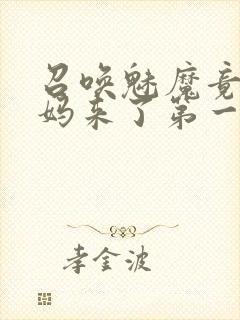 召唤魅魔竟
妈来了第一
李金波